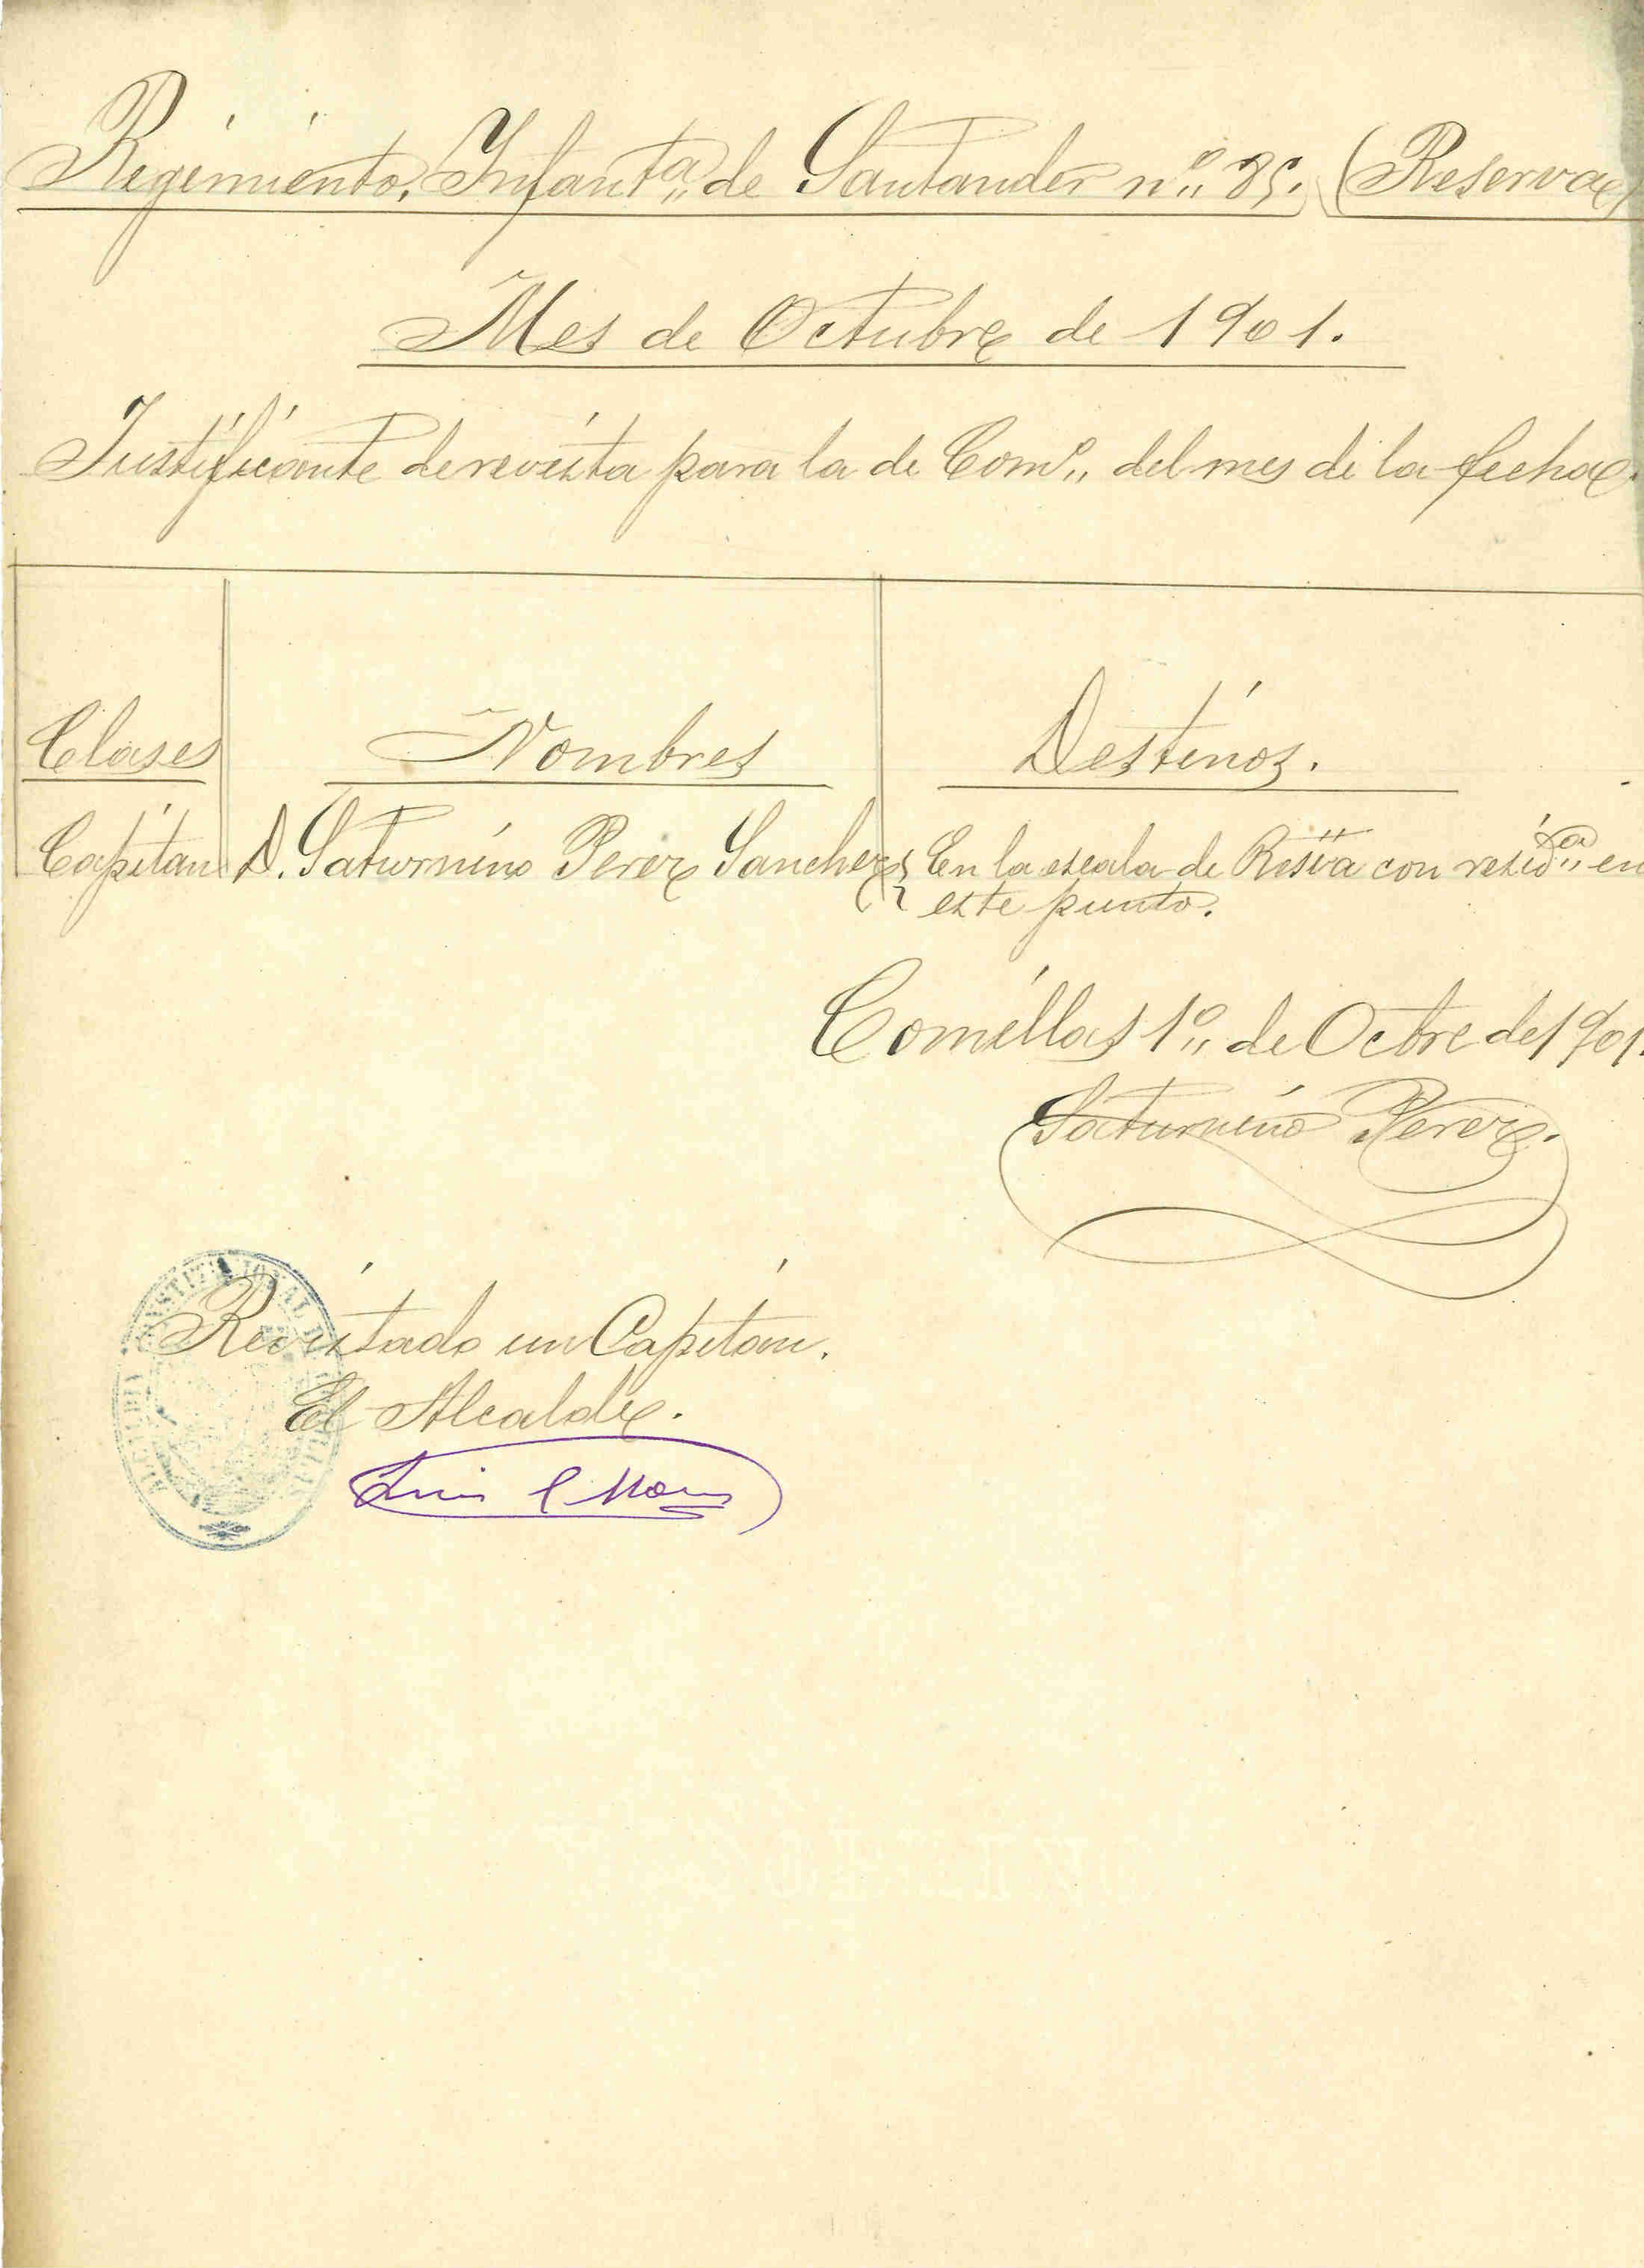 Regimiento, Infantª de Santander nº 85. (Reserva)
Mes de Octubre de 1901.
Justificante de revista para la de Comº del mes de la fecha.
Clases Nombres Destinos.
Capitan D. Saturnino Perez Sanchez En la escala de Resvª con residª en
este punto.
Comillas 1º de Octbre de 1901.
Saturnino Perez.
Revistado un Capitan.
El Alcalde.
Luis